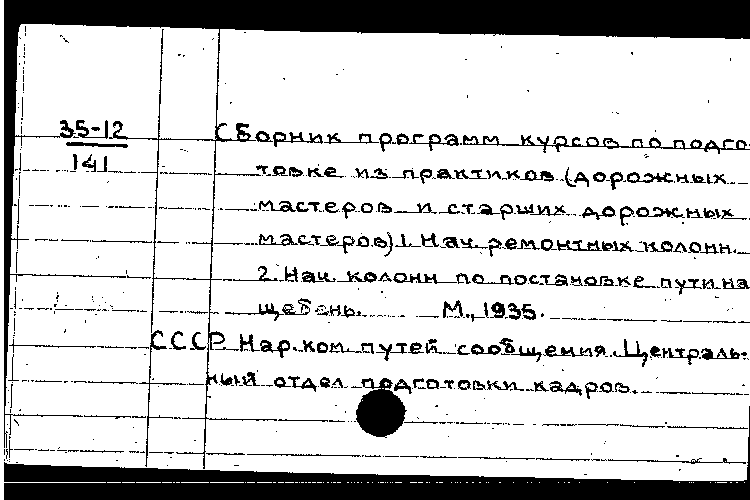 35-12
141
Сборник программ курсов по подго-
товке из практиков (дорожных
мастеров и старших дорожных
мастеров) 1. Нач. ремонтных колонн.
2. Нач. колонн по постановке пути на
щебень. М., 1935.
СССР Нар. ком. путей сообщения. Централь-
ный отдел подготовки кадров.